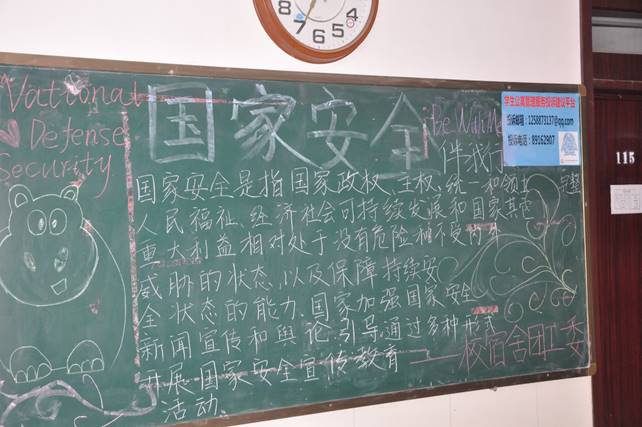 7 6 5 4
National
Defense
Security
国家安全
be With Me
伴我行
学生公寓管理服务投诉建议平台
投诉邮箱：1258873137@qq.com
投诉电话：89162907
115
国家安全是指国家政权、主权、统一和领土完整
人民福祉、经济社会可持续发展和国家其它
重大利益相对处于没有危险和不受内外
威胁的状态,以及保障持续安
全状态的能力.国家加强国家安全
新闻宣传和舆论.引导通过多种形式
开展国家安全宣传教育
活动.
——校宿舍团工委